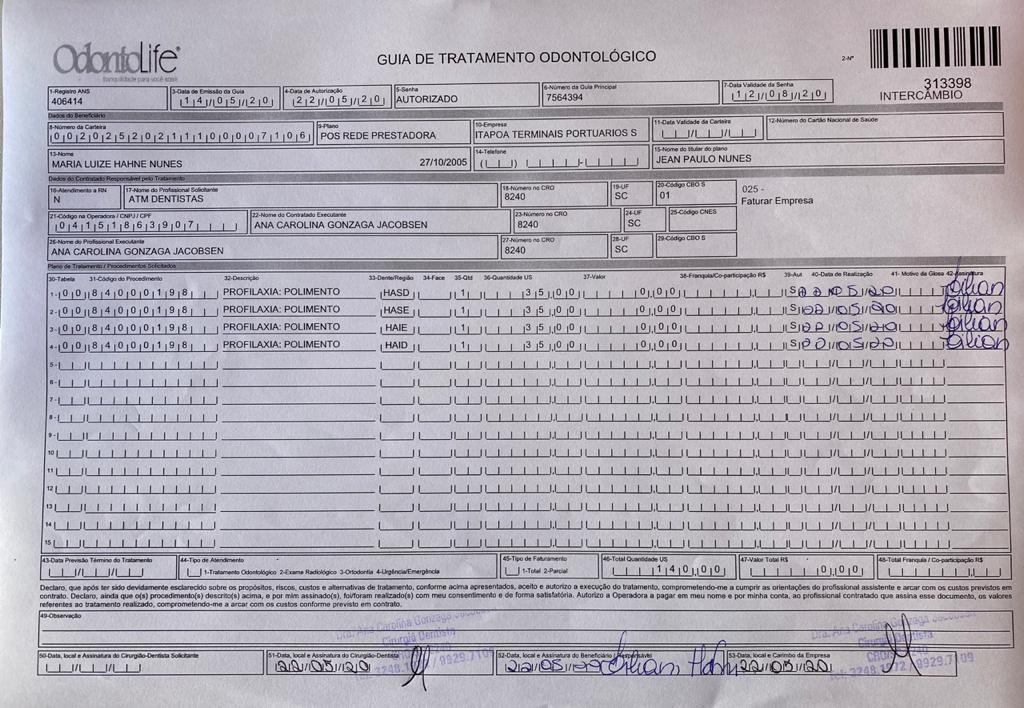 OdontoLife
tranquilidade para você sorrir
GUIA DE TRATAMENTO ODONTOLÓGICO
2-Nº
313398
INTERCÂMBIO
1-Registro ANS
406414
3-Data de Emissão da Guia
14/05/20
4-Data de Autorização
22/05/20
5-Senha
AUTORIZADO
6-Número da Guia Principal
7564394
7-Data Validade da Senha
12/08/20
Dados do Beneficiário
8-Número da Carteira
00202520211100007106
9-Plano
POS REDE PRESTADORA
10-Empresa
ITAPOA TERMINAIS PORTUARIOS S
11-Data Validade da Carteira
12-Número do Cartão Nacional de Saúde
13-Nome
MARIA LUIZE HAHNE NUNES 27/10/2005
14-Telefone
15-Nome do titular do plano
JEAN PAULO NUNES
Dados do Contratado Responsável pelo Tratamento
16-Atendimento a RN
N
17-Nome do Profissional Solicitante
ATM DENTISTAS
18-Número no CRO
8240
19-UF
SC
20-Código CBO S
01
025 -
Faturar Empresa
21-Código na Operadora / CNPJ / CPF
04151863907
22-Nome do Contratado Executante
ANA CAROLINA GONZAGA JACOBSEN
23-Número no CRO
8240
24-UF
SC
25-Código CNES
26-Nome do Profissional Executante
ANA CAROLINA GONZAGA JACOBSEN
27-Número no CRO
8240
28-UF
SC
29-Código CBO S
Plano de Tratamento / Procedimentos Solicitados
30-Tabela 31-Código do Procedimento 32-Descrição 33-Dente/Região 34-Face 35-Qtd 36-Quantidade US 37-Valor 38-Franquia/Co-participação R$ 39-Aut 40-Data de Realização 41- Motivo da Glosa 42-Assinatura
1- 00 84000198 PROFILAXIA: POLIMENTO HASD 1 35,00 0,00 S 22/05/20 Lilian
2- 00 84000198 PROFILAXIA: POLIMENTO HASE 1 35,00 0,00 S 22/05/20 Lilian
3- 00 84000198 PROFILAXIA: POLIMENTO HAIE 1 35,00 0,00 S 22/05/20 Lilian
4- 00 84000198 PROFILAXIA: POLIMENTO HAID 1 35,00 0,00 S 22/05/20 Lilian
5-
6-
7-
8-
9-
10
11
12
13
14
15
43-Data Previsão Término do Tratamento
44-Tipo de Atendimento
1-Tratamento Odontológico 2-Exame Radiológico 3-Ortodontia 4-Urgência/Emergência
45-Tipo de Faturamento
1-Total 2-Parcial
46-Total Quantidade US
140,00
47-Valor Total R$
0,00
48-Total Franquia / Co-participação R$
Declaro, que após ter sido devidamente esclarecido sobre os propósitos, riscos, custos e alternativas de tratamento, conforme acima apresentados, aceito e autorizo a execução do tratamento, comprometendo-me a cumprir as orientações do profissional assistente e arcar com os custos previstos em
contrato. Declaro, ainda que o(s) procedimento(s) descrito(s) acima, e por mim assinado(s), foi/foram realizado(s) com meu consentimento e de forma satisfatória. Autorizo a Operadora a pagar em meu nome e por minha conta, ao profissional contratado que assina esse documento, os valores
referentes ao tratamento realizado, comprometendo-me a arcar com os custos conforme previsto em contrato.
49-Observação
Dra. Ana Carolina Gonzaga Jacobsen
Cirurgiã Dentista
Dra. Ana Carolina Gonzaga Jacobsen
Cirurgiã Dentista
50-Data, local e Assinatura do Cirurgião-Dentista Solicitante
51-Data, local e Assinatura do Cirurgião-Dentista
22/05/20
3248.1972 / 9929.7109
52-Data, local e Assinatura do Beneficiário / Responsável
22/05/20 Lilian Hahne
53-Data, local e Carimbo da Empresa
22/05/20
Tel: 3248.1972 / 9929.7109